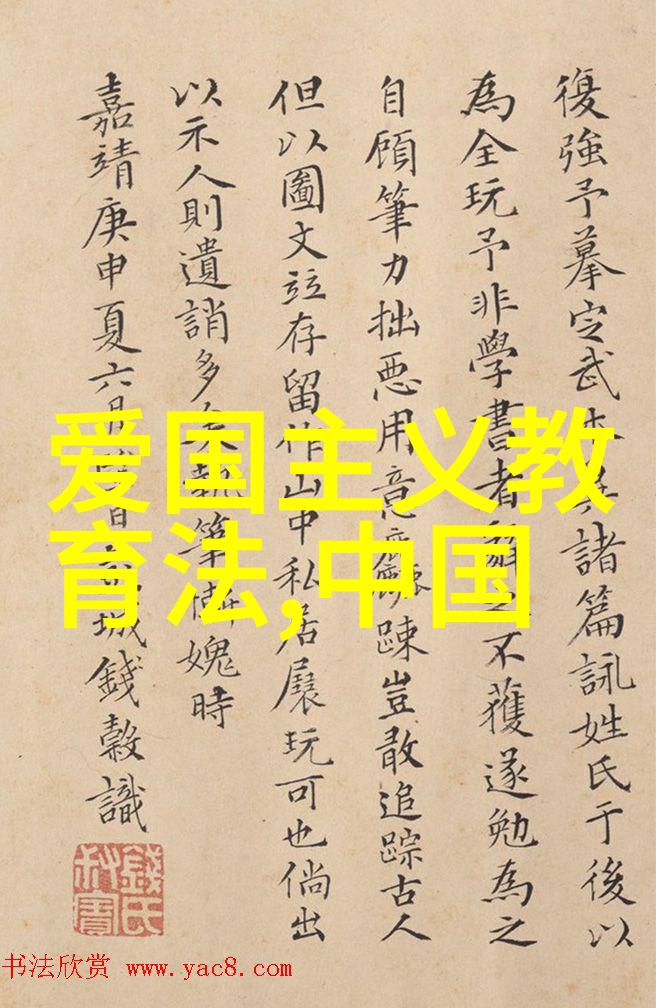 復強予摹定武本諸篇詠姓氏于後以
為全玩予非學書者不獲遂勉為之
自顧筆力拙惡用意踈豈敢追踪古人
但以圖文竝存留作山中私居展玩可也倘出
以示人則遺誚多矣執筆慚媿時
嘉靖庚申夏六月城錢穀識
錢氏叔寶
爱国主义教
育法,中国
书法欣赏 www.yac8.com